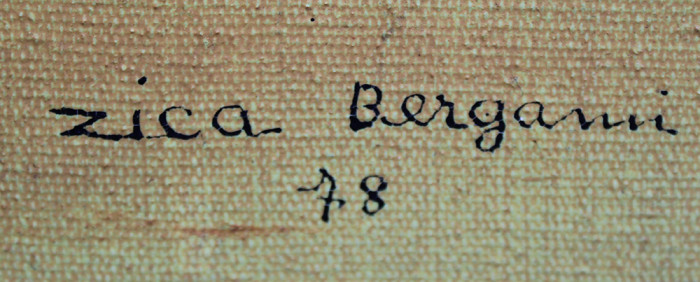 Zica Bergami
78